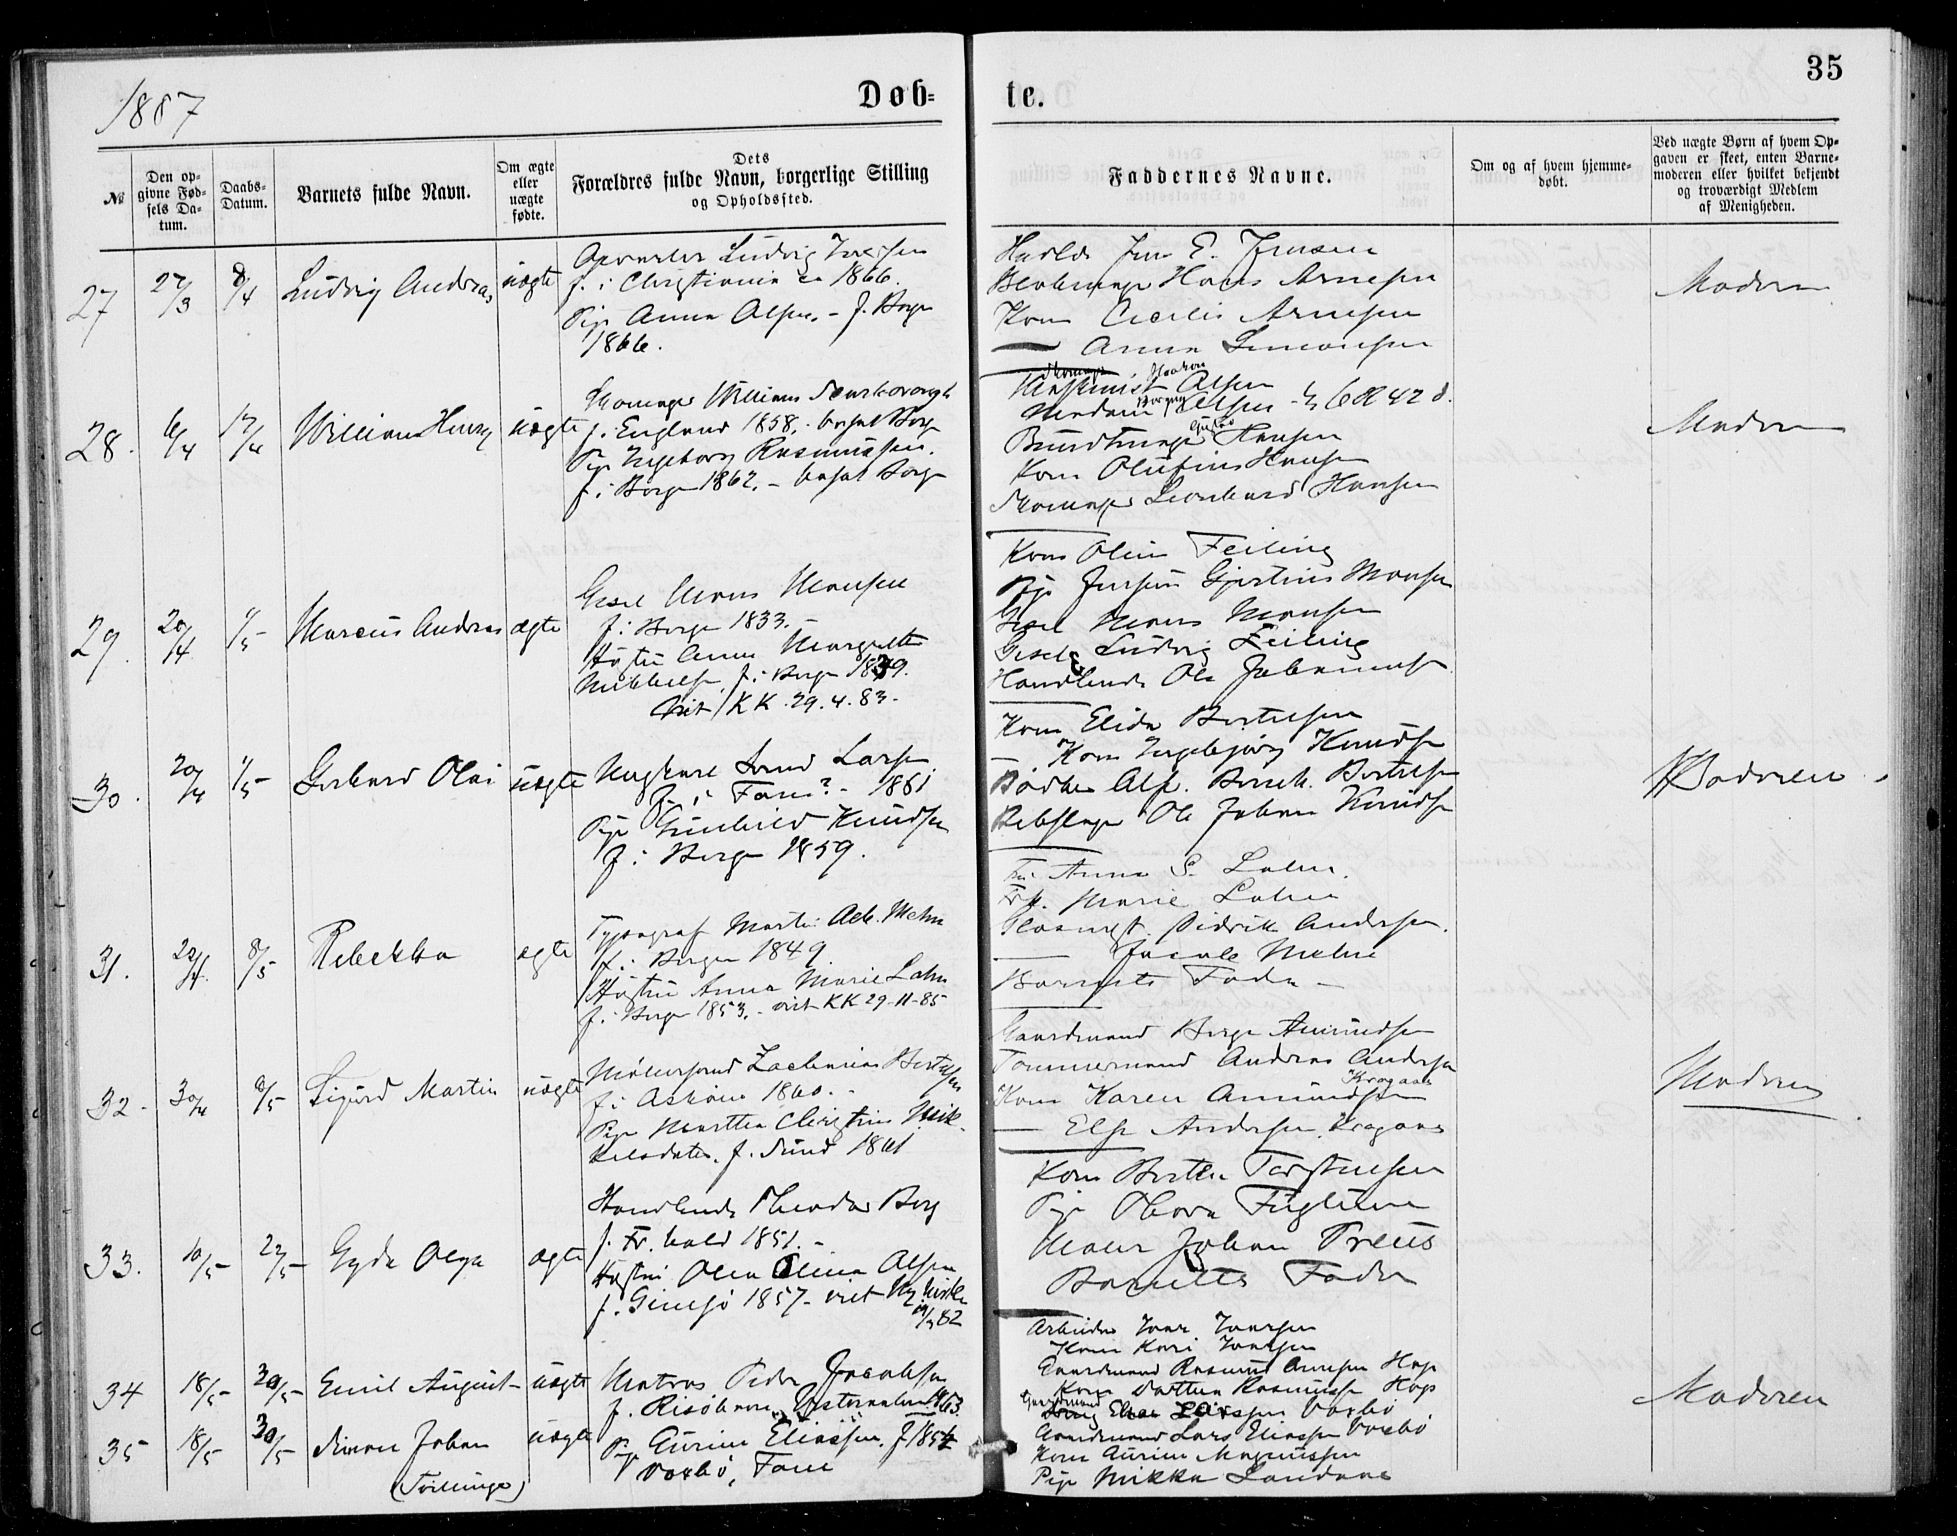 1887
Døb-
te.
35
№
Den opgivne Fødsels Datum.
Daabs-Datum.
Barnets fulde Navn.
Om ægte eller uægte fødte.
Dets
Forældres fulde Navn, borgerlige Stilling
og Opholdssted.
Faddernes Navne.
Om og af hvem hjemmedøbt.
Ved uægte Børn af hvem Opgaven er skeet, enten Barnemoderen eller hvilket bekjendt og troværdigt Medlem af Menigheden.
27 27/3 8/4 Ludvig Andreas uægte
Ludvig Iversen
f. i Christiania ca 1866.
Pige Anna Olsen - f. Bergen
1866.
E. Jensen
Hans Arnesen
Kone Cecilie Arnesen
— Anna Simonsen
Moderen
28. 6/4 17/4 William Henry uægte
Skomager William
f. England 1858. - bosat Bergen
Pige Ingeborg Rasmussen.
f. i Bergen 1862. - bosat Bergen
Haakon Olsen
Madam Olsen
Bundtmager Hansen
Kone Olufine Hansen
Skomager Leonhard Hansen
Moderen
29. 20/4 1/5 Marcus Andreas ægte
Gesel Mons Monsen
f. i Bergen 1833.
Hustru Anna Margrethe
Mikkelsen, f. i Bergen 1839.
viet KK. 29.4.83.
Kone Oline Feiling
Pige Gjertine Monsen
Gesel Mons Monsen
Gesel Ludvig Feiling
Handlende Ole Johannes
30. 20/4 1/5 Gerhard Olai uægte
Ungkarl Larsen
f. i Fane? - 1861
Pige Gunhild Knudsen
f. i Bergen 1859.
Kone Elida Bertelsen
— Kone Ingebjørg Knudsen
Bødker Alf. Bertelsen
Rebslager Ole Johan Knudsen
Moderen
31. 22/4 8/5 Rebekka ægte
Typograf Martin Ack. Mehn
f. i Bergen 1849.
Hustru Anna Marie Lahn
f. i Bergen 1853. - viet KK 29-11-85
Fru Anna S. Lahn.
Frk. Marie Lahn
Didrik Andersen.
— Jacob Mehn
Barnets Fader -
32. 30/4 8/5 Sigurd Martin uægte
Møllersvend Zacharias Bertelsen
f. i Askøen 1860. -
Pige Marthe Christine Mik-
kelsdatter. f. Sund 1861
Gaardmand Børge Amundsen
Tømmermand Andreas Andersen
Kone Karen Amundsen Kragaas
— Else Andersen. Kragaas
Moderen
33. 10/5 22/5 Gyda Olga ægte
Handlende Theodor Berg
f. Fr.hald 1851. -
Hustru Olea Oline Olsen
f. Gimsø 1857 - viet Ny Kirken
82
Kone Berthe Torstensen
Pige Thora Fugletun
Maler Johan Preus
Barnets Fader
34 18/5 30/5 Emil August uægte
Matros Peder Jacobsen
f. Risøhavn, Vesteraalen 1863.
Arbeider Iver Iversen
Kone Kari Iversen
Gaardmand Rasmus Arnesen Hop
Kone Dorthea Rasmussen Hop
Moderen
35 18/5 30/5 Simon Johan uægte
(Tvillinge)
Pige Gurine Eliassen. f 1854
Vaxbø, Fane
Gaardmand Elias Larsen Vaxbø
Gaardmand Lars Eliassen Vaxbø
Kone Gurine Magnussen
Pige Mikka Landaas